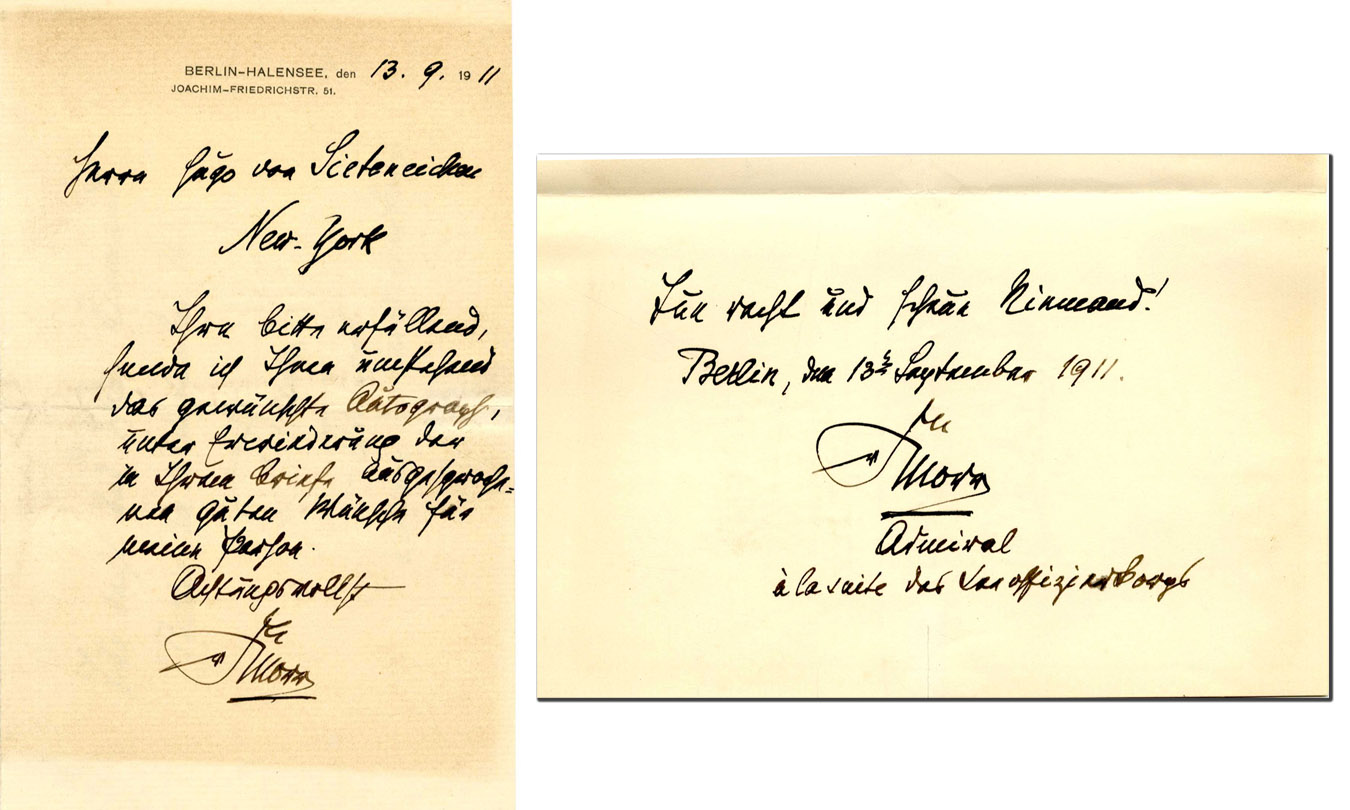 BERLIN-HALENSEE, den 13. 9. 1911
JOACHIM-FRIEDRICHSTR. 51.
Herrn Hugo von
New-York
Ihre bitte erfüllend,
sende ich Ihnen umstehend
das gewünschte Autograph,
unter Erwiederung der
in Ihrem briefe ausgesproche=
nen guten Wünsche für
meine Person.
Achtungsvollst
Tue recht und scheue Niemand!
Berlin, den 13ᵗ September 1911.
Admiral
à la suite des Seeoffizierkorps